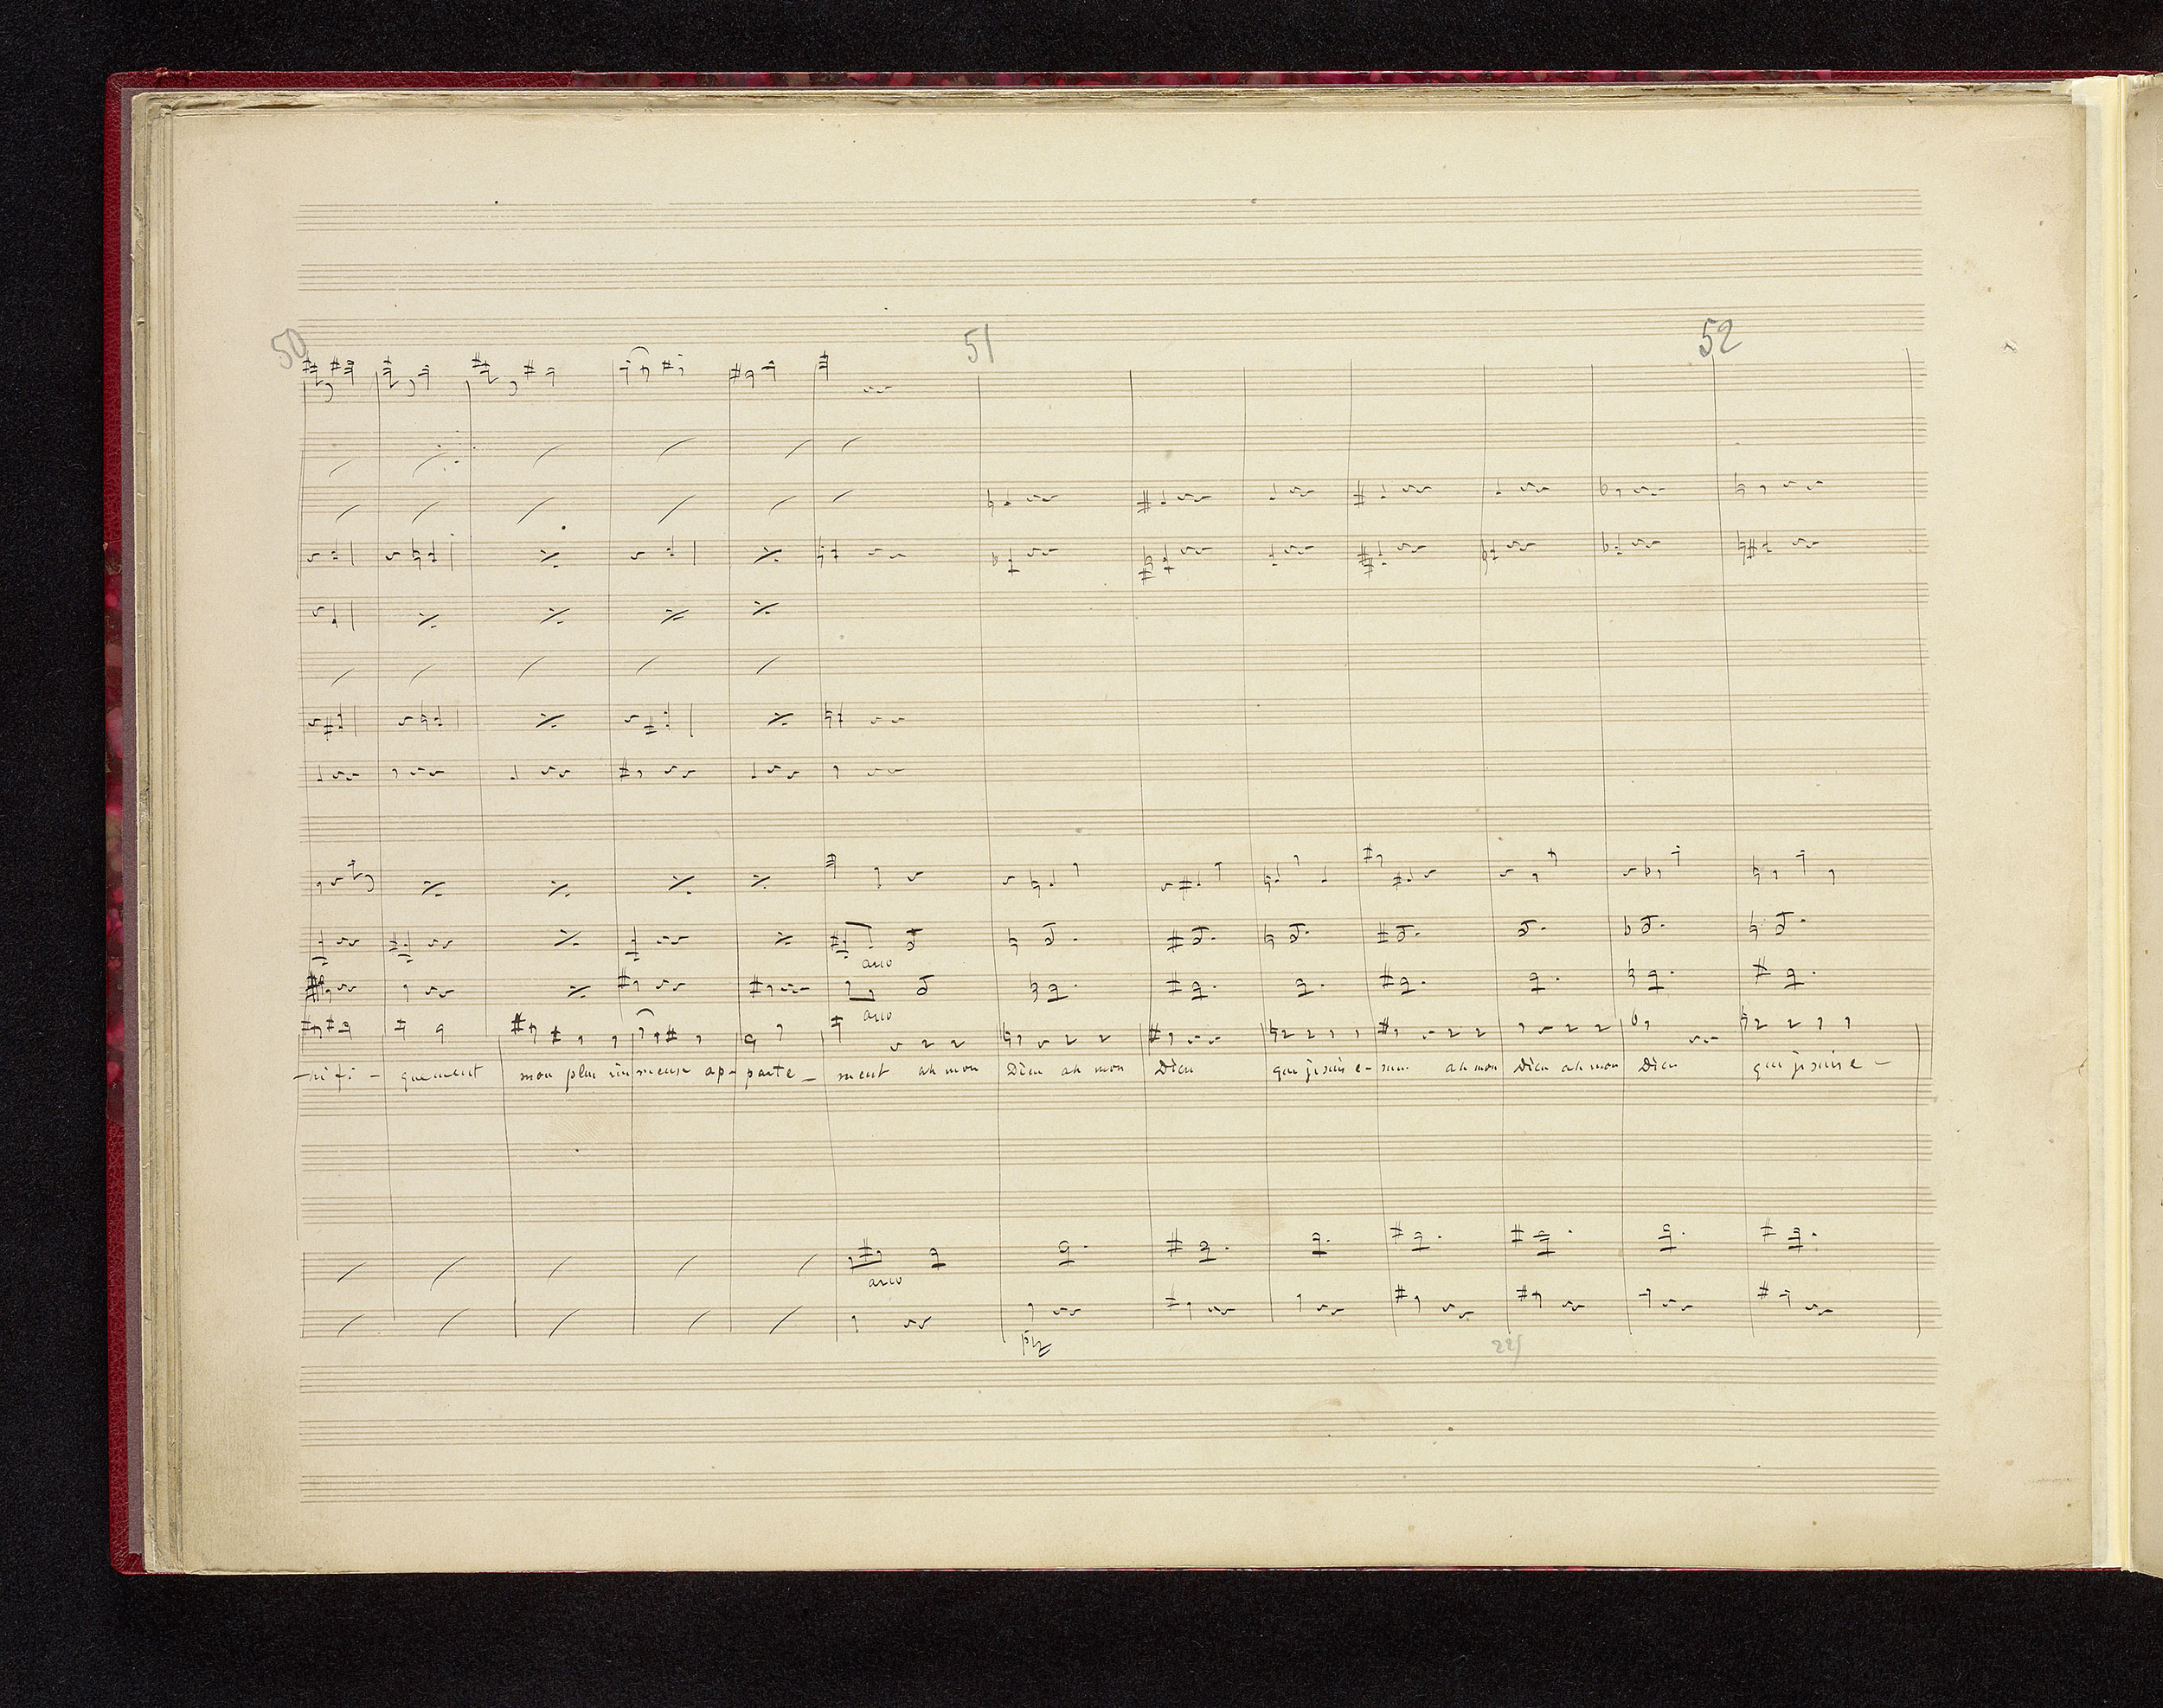 50 51 52
arco
arco
- ni fi - quement mon plus im mense ap- parte - ment ah mon Dieu ah mon Dieu que je suis e- mu ah mon Dieu ah mon Dieu que je suis e -
arco